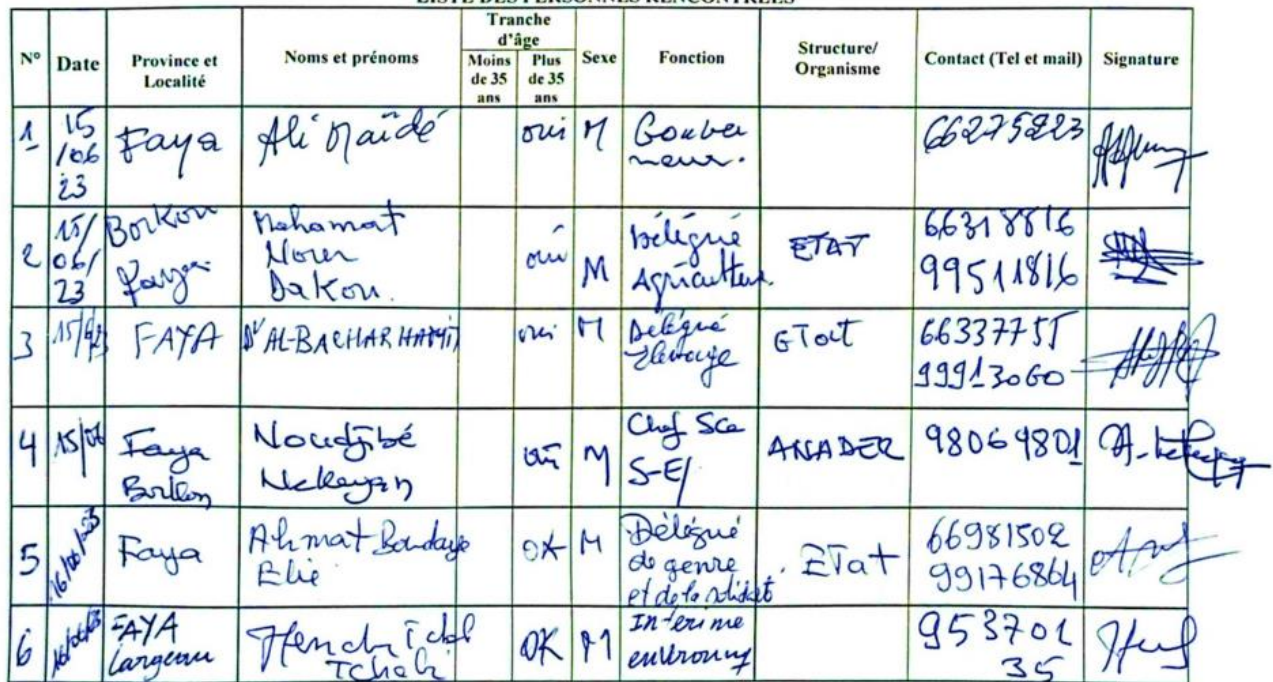 LISTE DES PERSONNES RENCONTREES
N° Date Province et Localité Noms et prénoms Tranche d'âge Moins de 35 ans Plus de 35 ans Sexe Fonction Structure/ Organisme Contact (Tel et mail) Signature
1 15/06 23 Faya Ali Maïdé oui M Gouverneur. 66275223
2 15/06/23 Borkou Faya Mahamat Nour Dakou. oui M Délégué Agriculture. ETAT 66318816 99511816
3 FAYA Dr AL-BACHAR oui M Délégué Elevage ETat 66337755 99913060
4 15/06 Faya Noudjibé oui M Chef Sce S-E/ ANADER 98069801
5 16/06/23 Faya Ahmat Elie OK M Délégué de genre et de la ETat 66981502 99176864
6 FAYA Largeau OK M Interime 953701 35